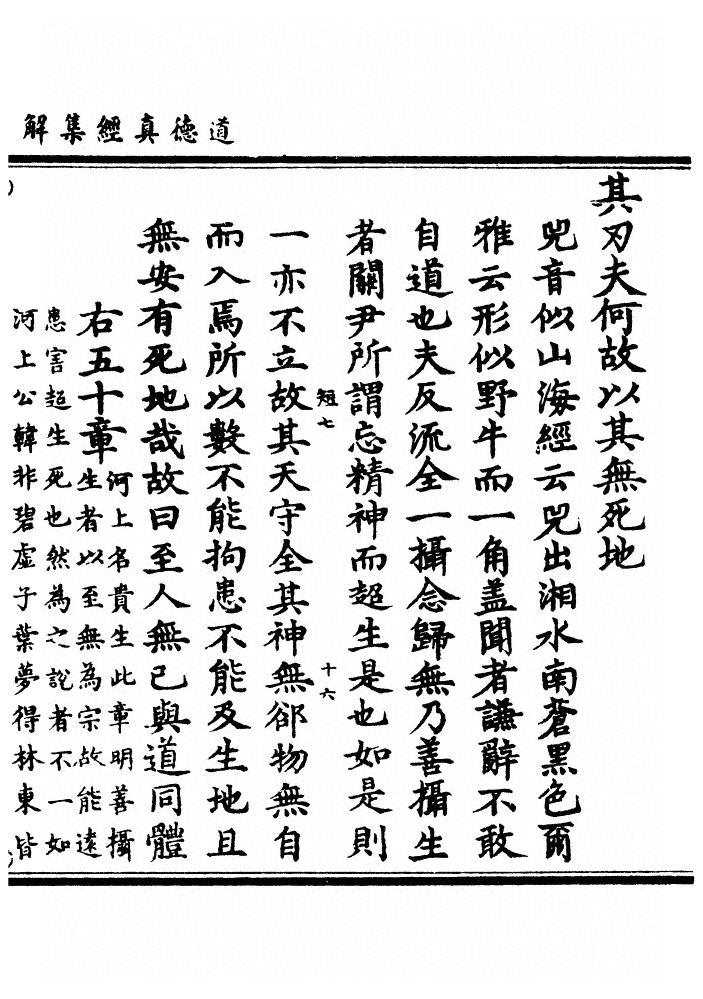 道德真經集解
其刃夫何故以其無死地
兕音似山海經云兕出湘水南蒼黑色爾
雅云形似野牛而一角盖聞者謙辭不敢
自道也夫反流全一攝念歸無乃善攝生
者關尹所謂忘精神而超生是也如是則
短七
十六
一亦不立故其天守全其神無郤物無自
而入焉所以數不能拘患不能及生地且
無安有死地哉故曰至人無己與道同體
右五十章
河上名貴生此章明善攝
生者以至無為宗故能遠
患害超生死也然為之說者不一如
河上公韓非碧虛子葉夢得林東皆